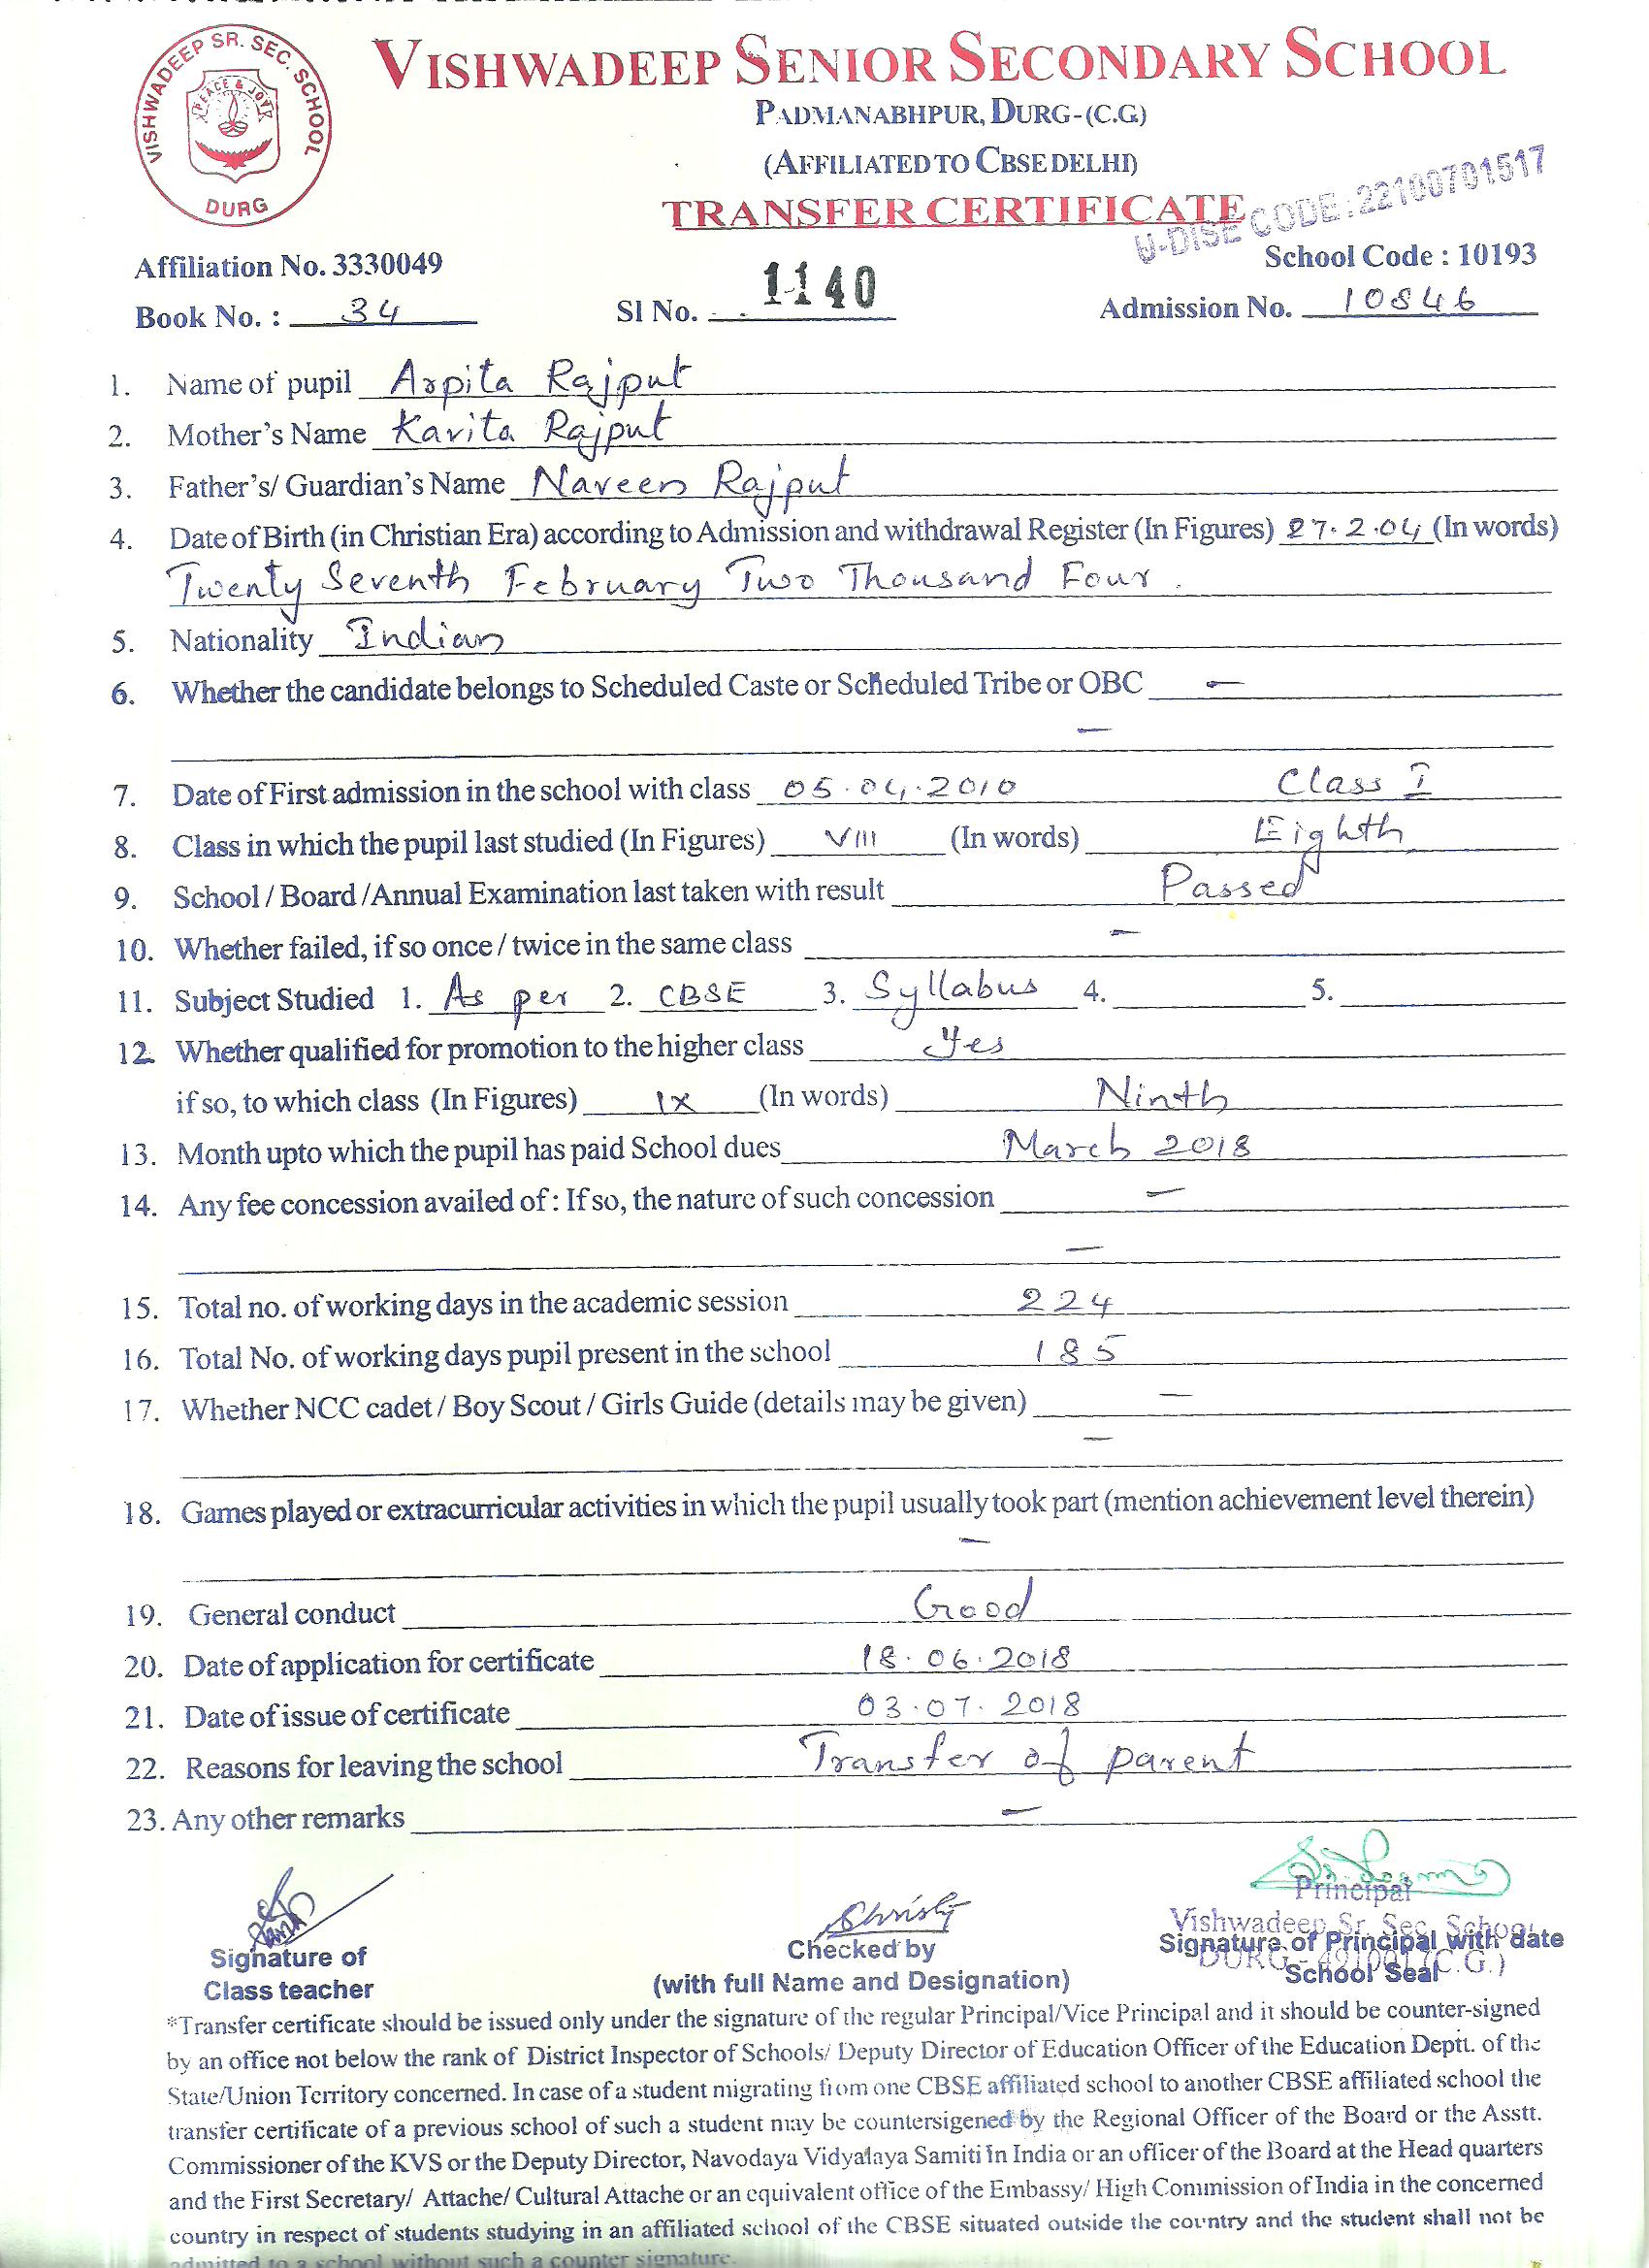 VISHWADEEP SR. SEC. SCHOOL
PEACE & JOY
DURG
VISHWADEEP SENIOR SECONDARY SCHOOL
PADMANABHPUR, DURG-(C.G.)
(AFFILIATED TO CBSE DELHI)
TRANSFER CERTIFICATE
U-DISE CODE:22100701517
Affiliation No. 3330049 School Code : 10193
Book No. : 34 Sl No. 1140 Admission No. 10846
1. Name of pupil Arpita Rajput
2. Mother's Name Kavita Rajput
3. Father's/ Guardian's Name Naveen Rajput
4. Date of Birth (in Christian Era) according to Admission and withdrawal Register (In Figures) 27.2.04 (In words)
Twenty Seventh February Two Thousand Four.
5. Nationality Indian
6. Whether the candidate belongs to Scheduled Caste or Scheduled Tribe or OBC —
—
7. Date of First admission in the school with class 05.04.2010 Class I
8. Class in which the pupil last studied (In Figures) VIII (In words) Eighth
9. School / Board /Annual Examination last taken with result Passed
10. Whether failed, if so once / twice in the same class —
11. Subject Studied 1. As per 2. CBSE 3. Syllabus 4. 5.
12. Whether qualified for promotion to the higher class Yes
if so, to which class (In Figures) IX (In words) Ninth
13. Month upto which the pupil has paid School dues March 2018
14. Any fee concession availed of : If so, the nature of such concession —
—
15. Total no. of working days in the academic session 224
16. Total No. of working days pupil present in the school 185
17. Whether NCC cadet / Boy Scout / Girls Guide (details may be given) —
—
18. Games played or extracurricular activities in which the pupil usually took part (mention achievement level therein)
—
19. General conduct Good
20. Date of application for certificate 18.06.2018
21. Date of issue of certificate 03.07.2018
22. Reasons for leaving the school Transfer of parent
23. Any other remarks —
Principal
Christy Vishwadeep Sr. Sec. School
Signature of Checked by Signature of Principal with date
DURG - 491001 (C.G.)
Class teacher (with full Name and Designation) School Seal
*Transfer certificate should be issued only under the signature of the regular Principal/Vice Principal and it should be counter-signed
by an office not below the rank of District Inspector of Schools/ Deputy Director of Education Officer of the Education Deptt. of the
State/Union Territory concerned. In case of a student migrating from one CBSE affiliated school to another CBSE affiliated school the
transfer certificate of a previous school of such a student may be countersigened by the Regional Officer of the Board or the Asstt.
Commissioner of the KVS or the Deputy Director, Navodaya Vidyalaya Samiti in India or an officer of the Board at the Head quarters
and the First Secretary/ Attache/ Cultural Attache or an equivalent office of the Embassy/ High Commission of India in the concerned
country in respect of students studying in an affiliated school of the CBSE situated outside the country and the student shall not be
admitted to a school without such a counter signature.